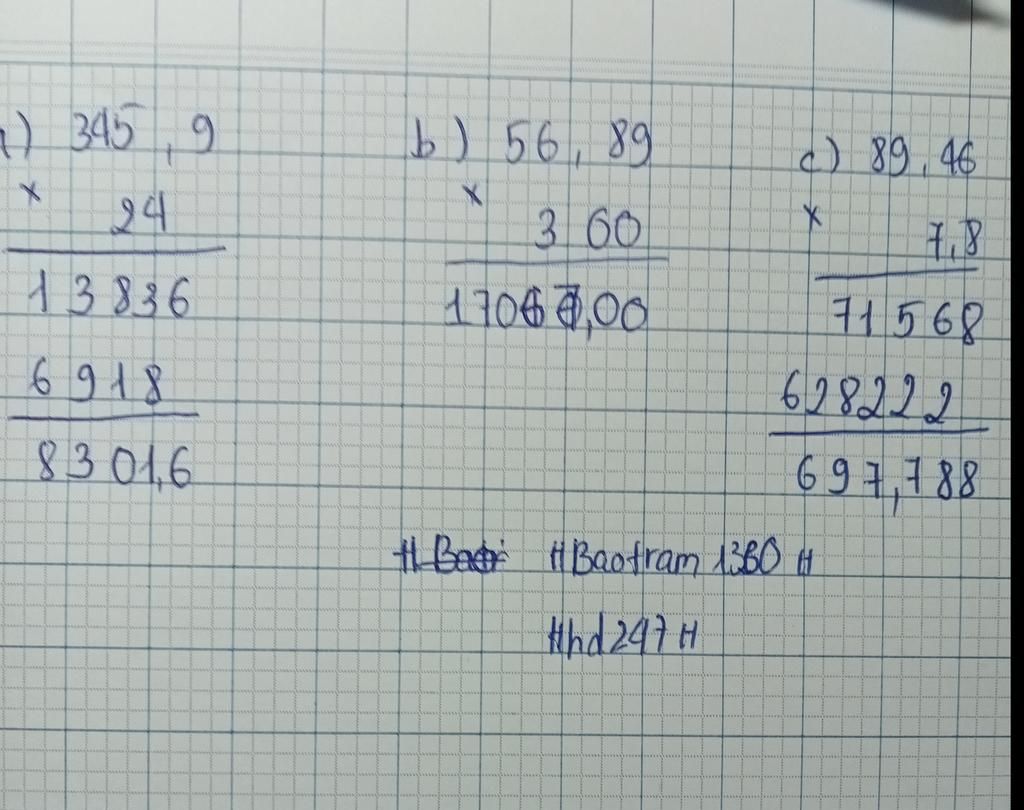 a) 345,9
x 24
13836
6918
8301,6
b) 56,89
x 360
17067,00
c) 89,46
x 7,8
71568
628222
697,788
#Baotram1360#
#hd247#